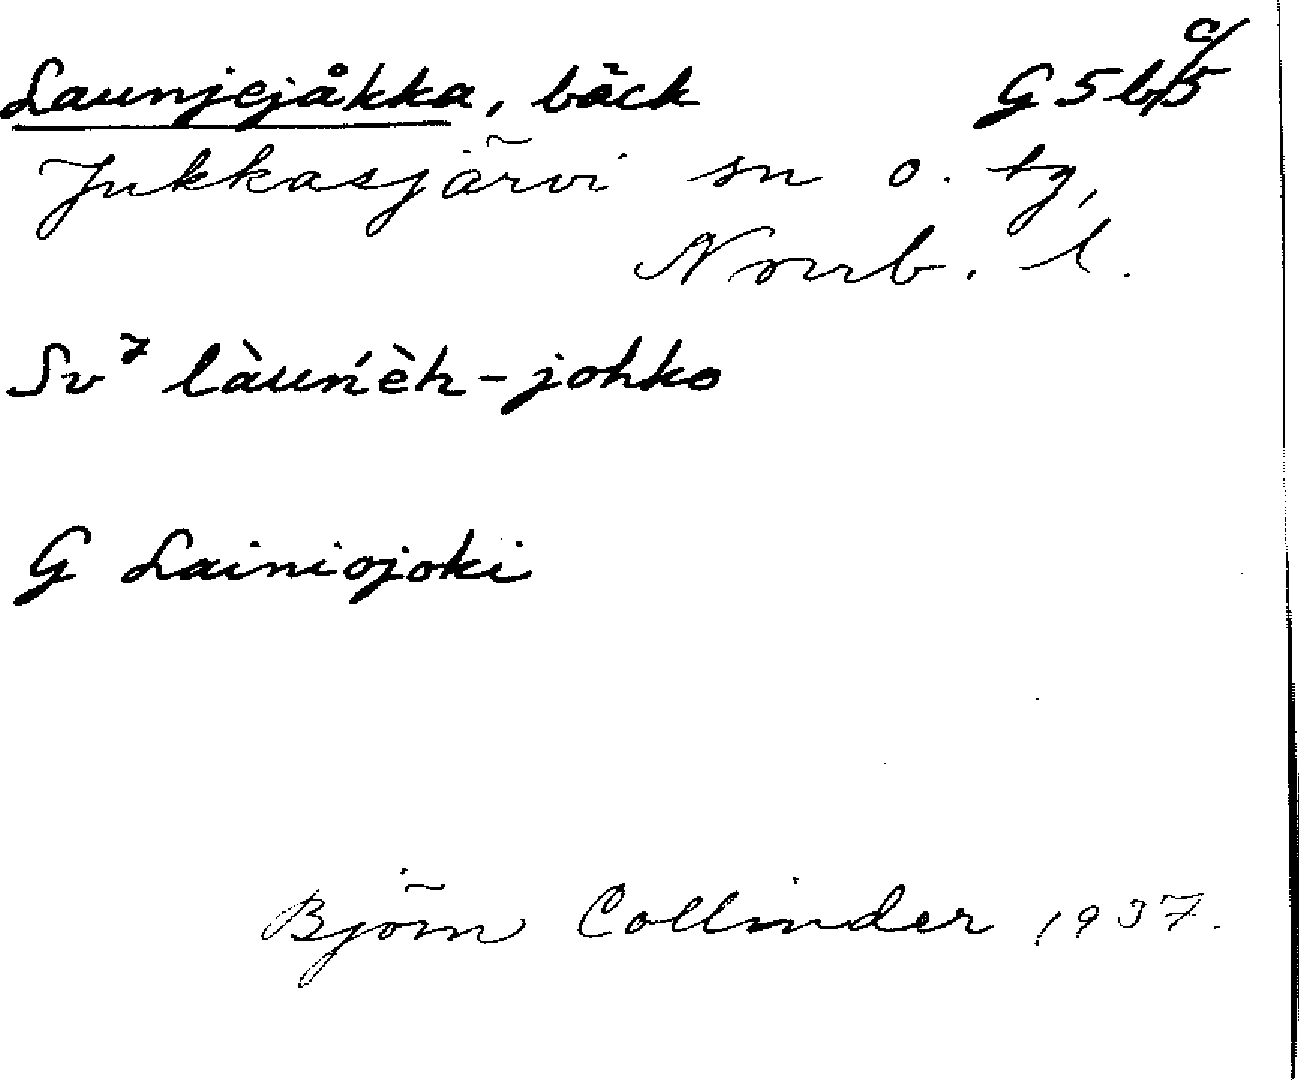 Launjejåkka, bäck G5b/5 c/
Jukkasjärvi sn o. tg,
Norrb. l.
Sv⁷ làuńèh-johko
G Lainiojoki
Björn Collinder 1937.